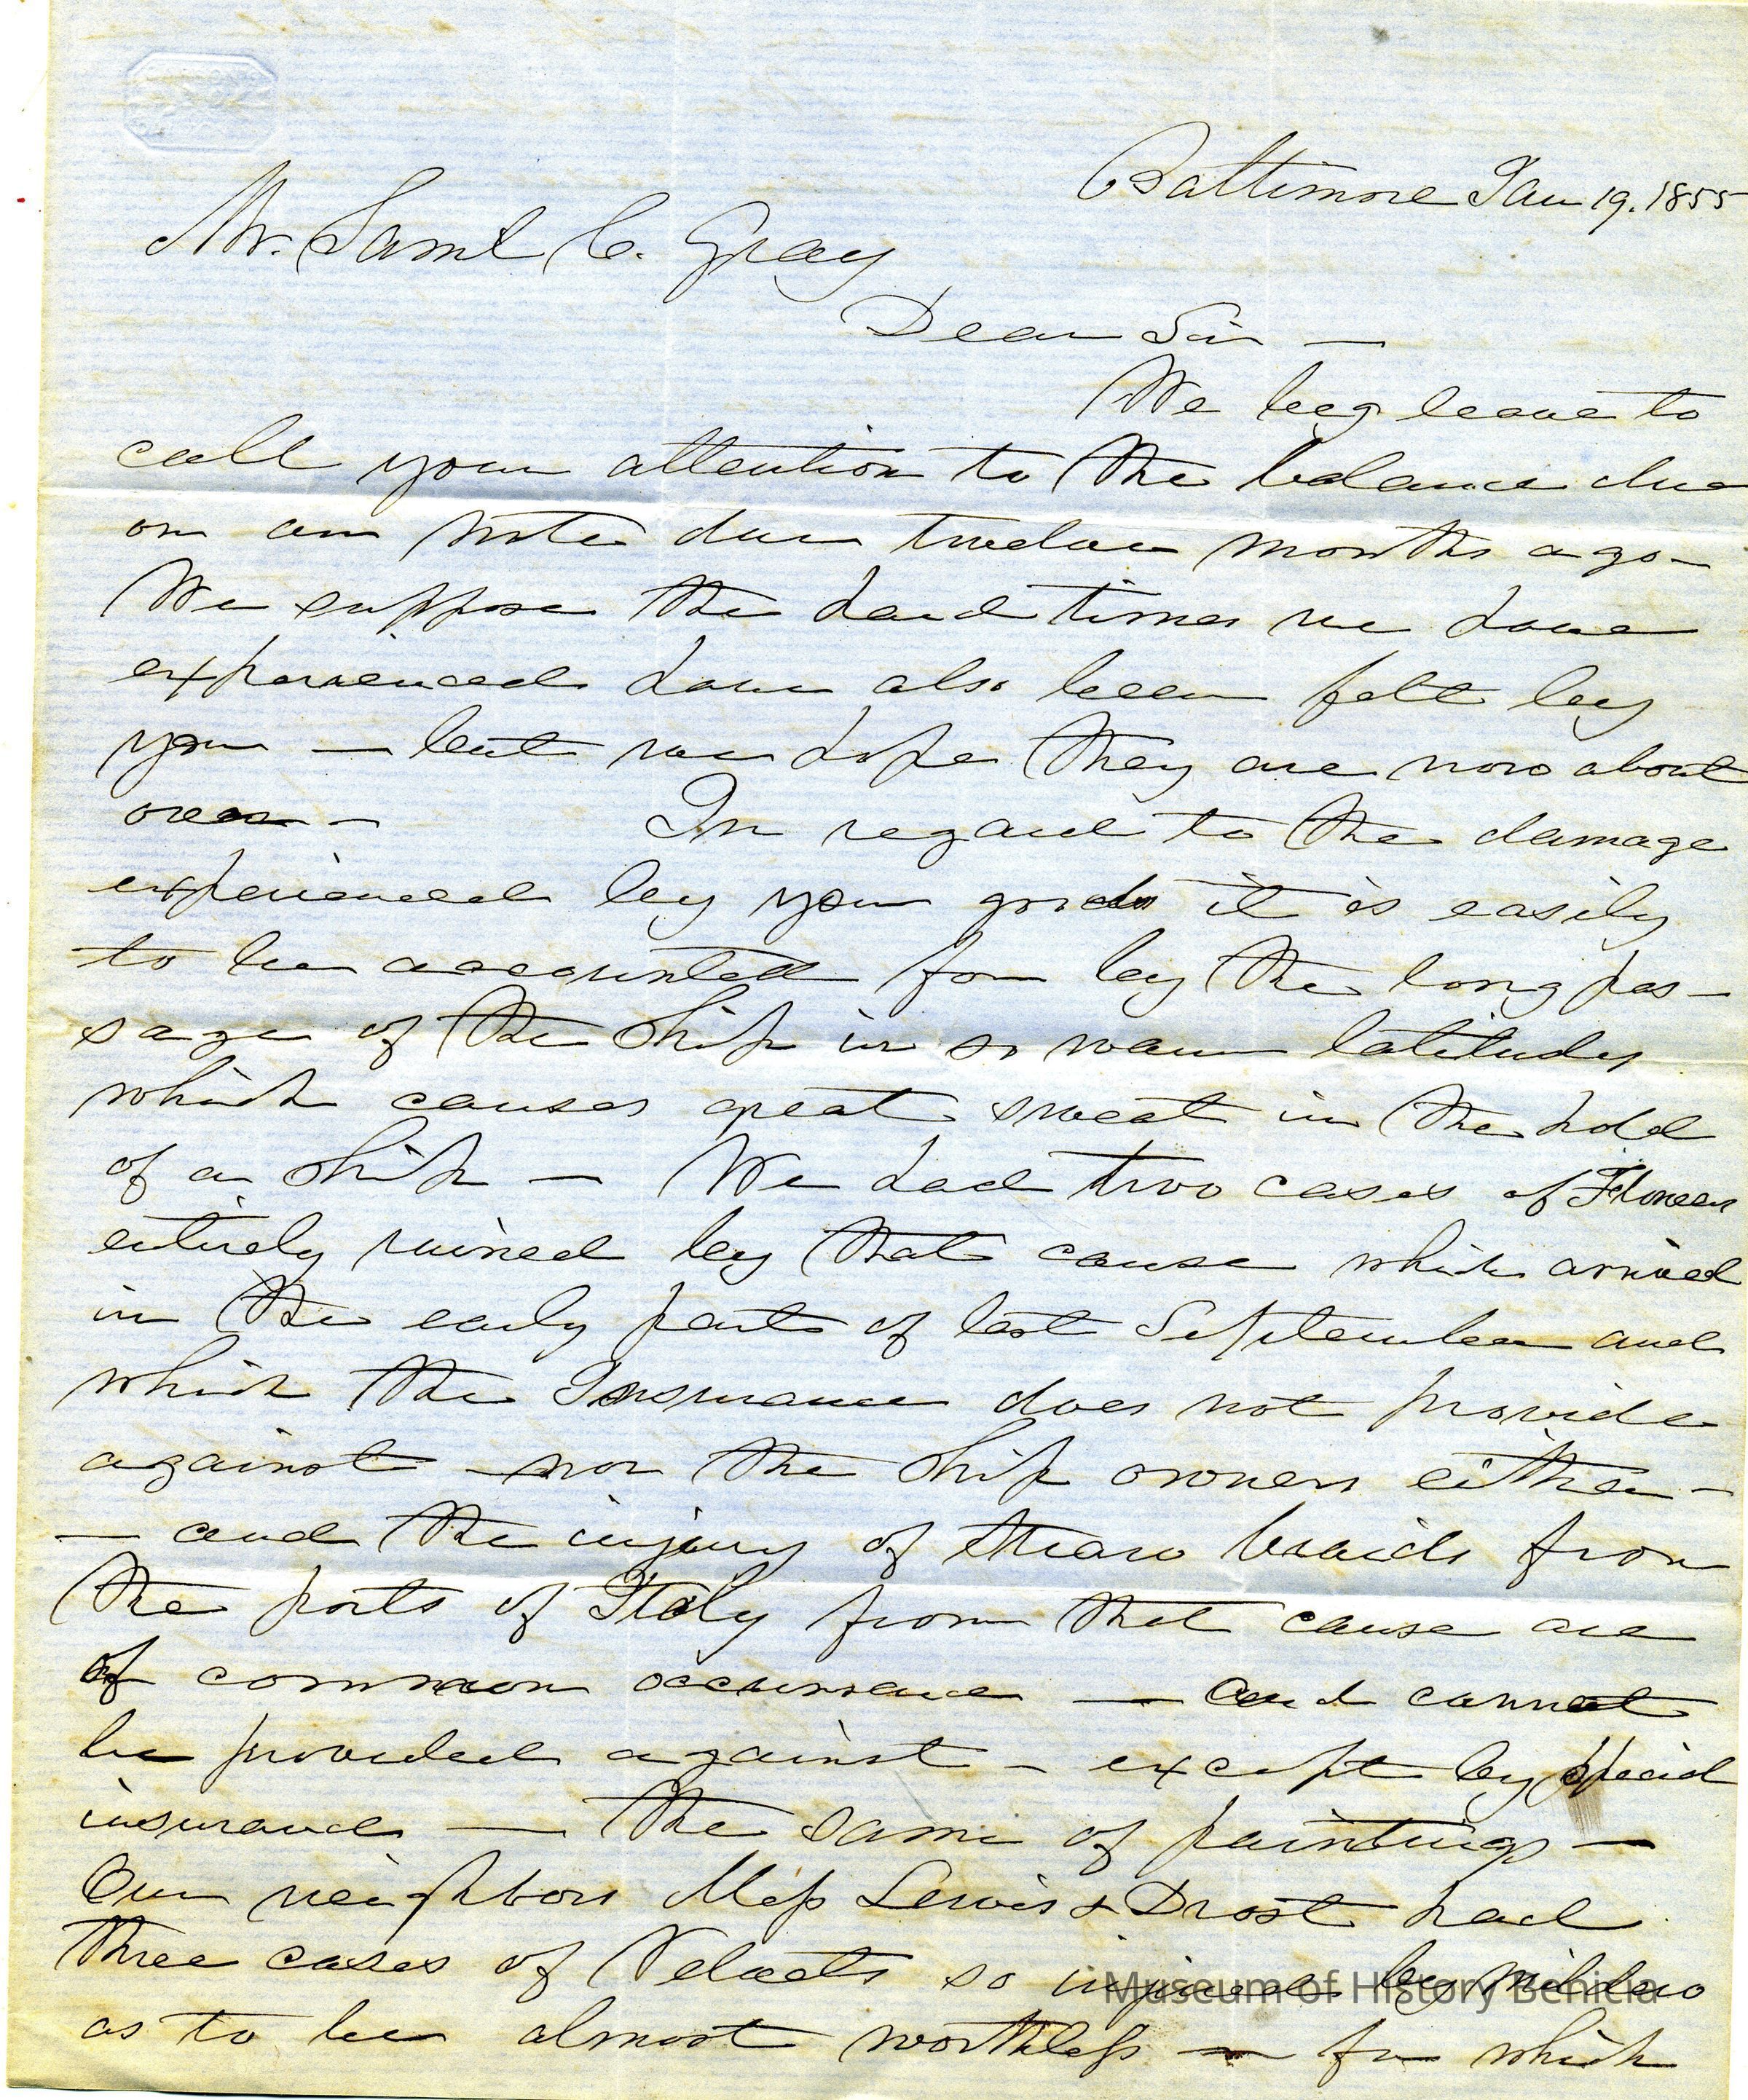 Baltimore Jan 19. 1855
Mr. Saml C. Gray
Dear Sir —
We beg leave to
call your attention to the balance due
on our note due twelve months ago —
We suppose the hard times we have
experienced have also been felt by
you — but we hope they are now about
over — In regard to the damage
experienced by your goods it is easily
to be accounted for by the long pas-
sage of the Ship in so warm latitudes
which causes great sweat in the hold
of a Ship — We had two cases of Flowers
entirely ruined by that cause which arrived
in the early part of last September and
which the Insurance does not provide
against — nor the Ship owners either —
— and the injury of straw braids from
the ports of Italy from that cause are
of common occurrence — and cannot
be provided against — except by special
insurance — the same of paintings —
Our neighbors Mess Lewis & Drost had
three cases of Velvets so injured by mildew
as to be almost worthless — for which
Museum of History Benicia